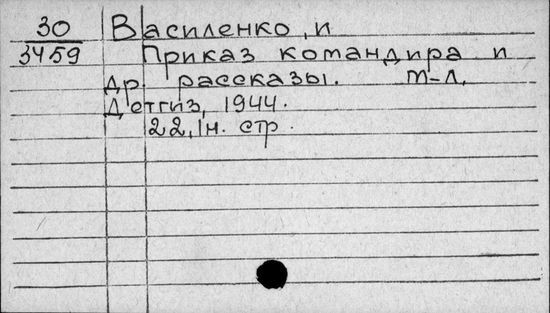 30 Василенко, и
3459 Приказ командира и
др. рассказы. м-л.
Детгиз, 1944.
22, 1н. стр.